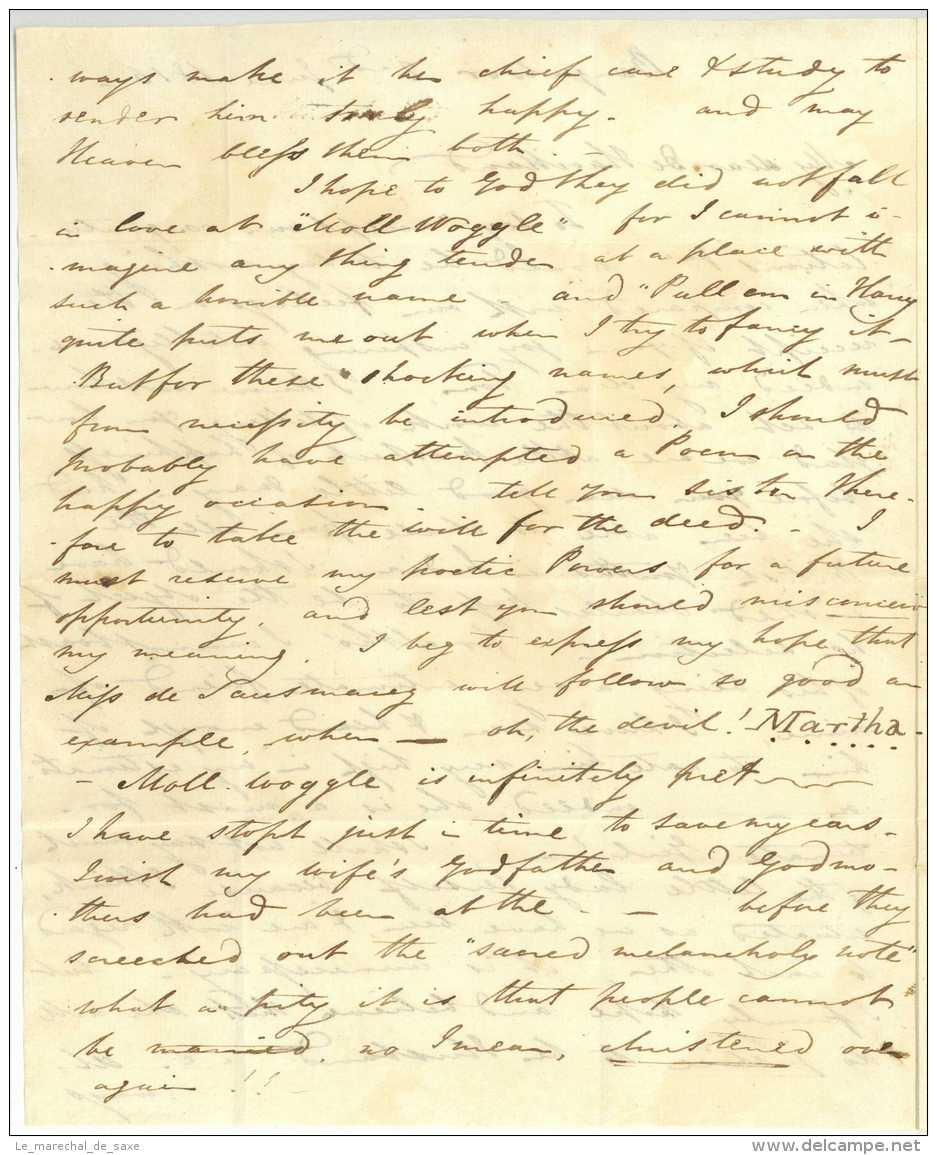 ways make it her chief care & study to
render him truly happy. and may
Heaven bless them both.
I hope to God they did not fall
in love at "Moll Woggle" for I cannot i-
magine any thing tender at a place with
such a horrible name - and "Pull em in Harry
quite puts me out when I try to fancy it -
But for these shocking names, which must
from necessity be introduced, I should
probably have attempted a Poem on the
happy occasion. tell your sister there-
fore to take the will for the deed. - I
must reserve my poetic Powers for a future
opportunity, and lest you should misconceive
my meaning, I beg to express my hope that
Miss de Sausmarez will follow so good an
example, when — oh, the devil! Martha -
- Moll Woggle is infinitely pret
I have stopt just in time to save my ears -
I wish my wife's Godfather and Godmo-
thers had been at the - - before they
screeched out the "sacred melancholy note"
what a pity it is that people cannot
be married, no I mean, christened over
again!!
Le_marechal_de_saxe
www.delcampe.net